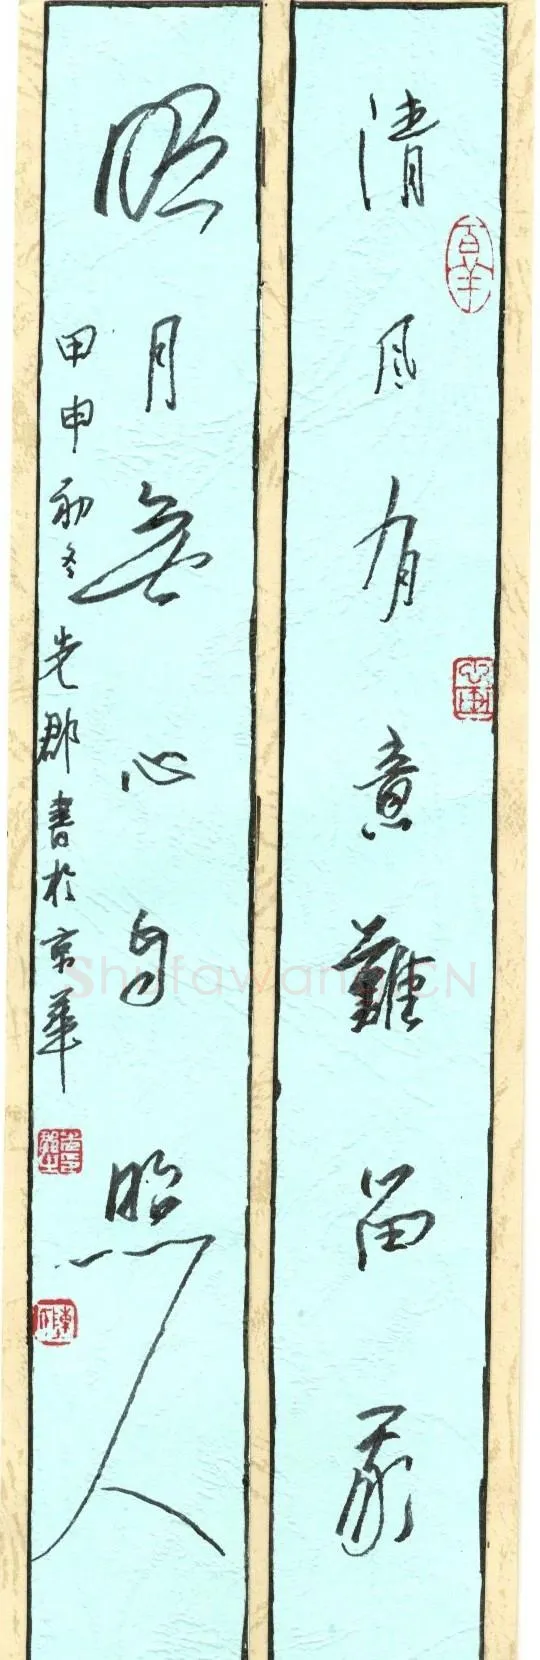 清風有意難留我
明月無心自照人
甲申初冬先郡書於京華
Shufawang.CN